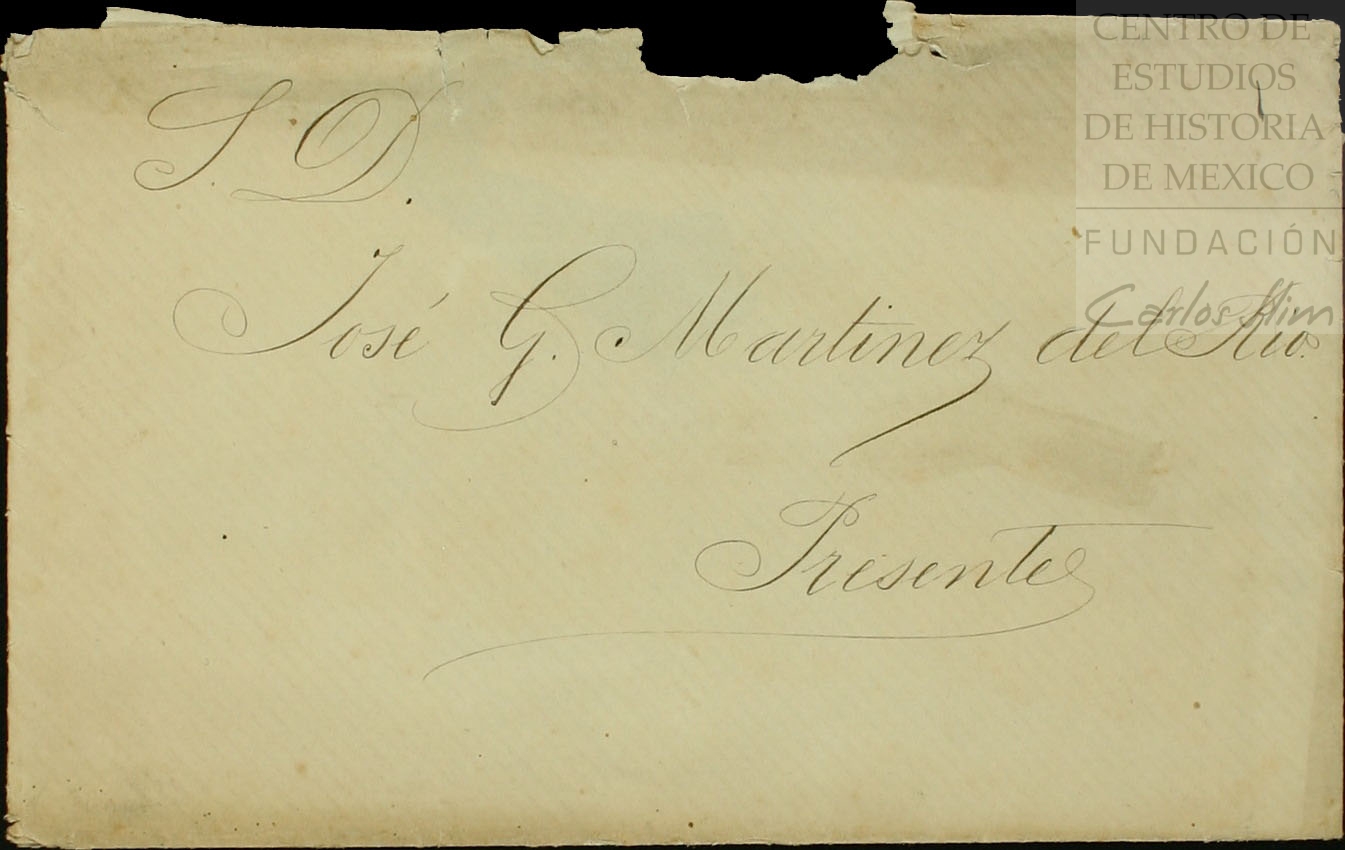 S. D.
José G. Martinez del Rio.
Presente
CENTRO DE
ESTUDIOS
DE HISTORIA
DE MEXICO
FUNDACIÓN
Carlos Slim